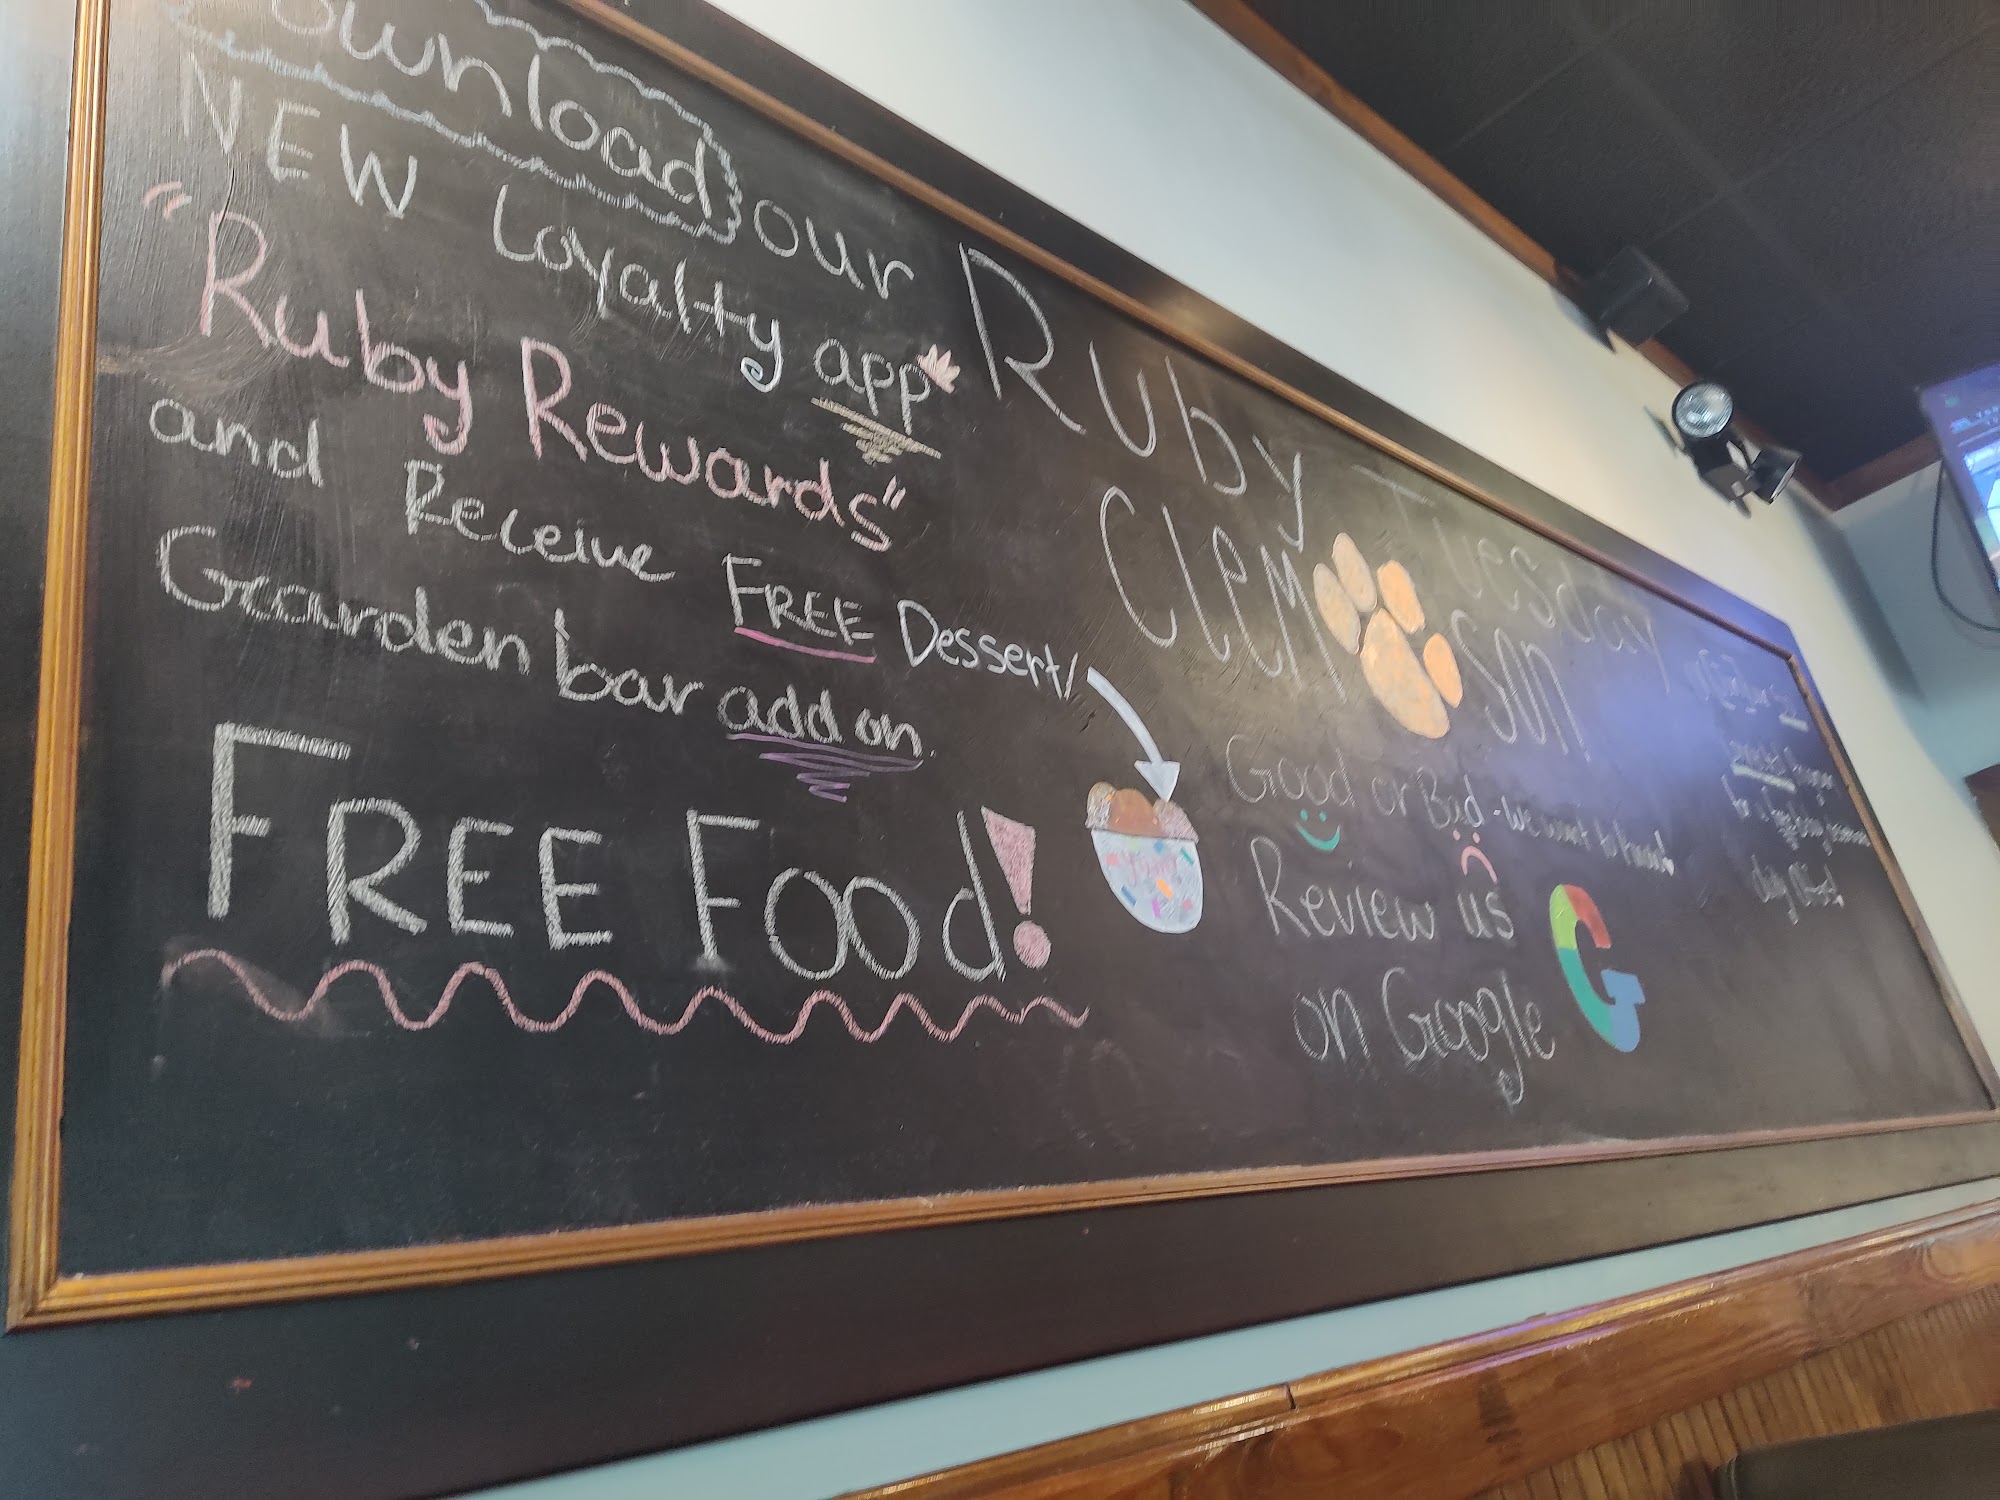 Download our
NEW Loyalty app
"Ruby Rewards"
and Receive FREE Dessert/
Garden bar add on
FREE Food!
Ruby Tuesday
Clem Son
Good or Bad - we want to know!
Review us
on Google
G
yum